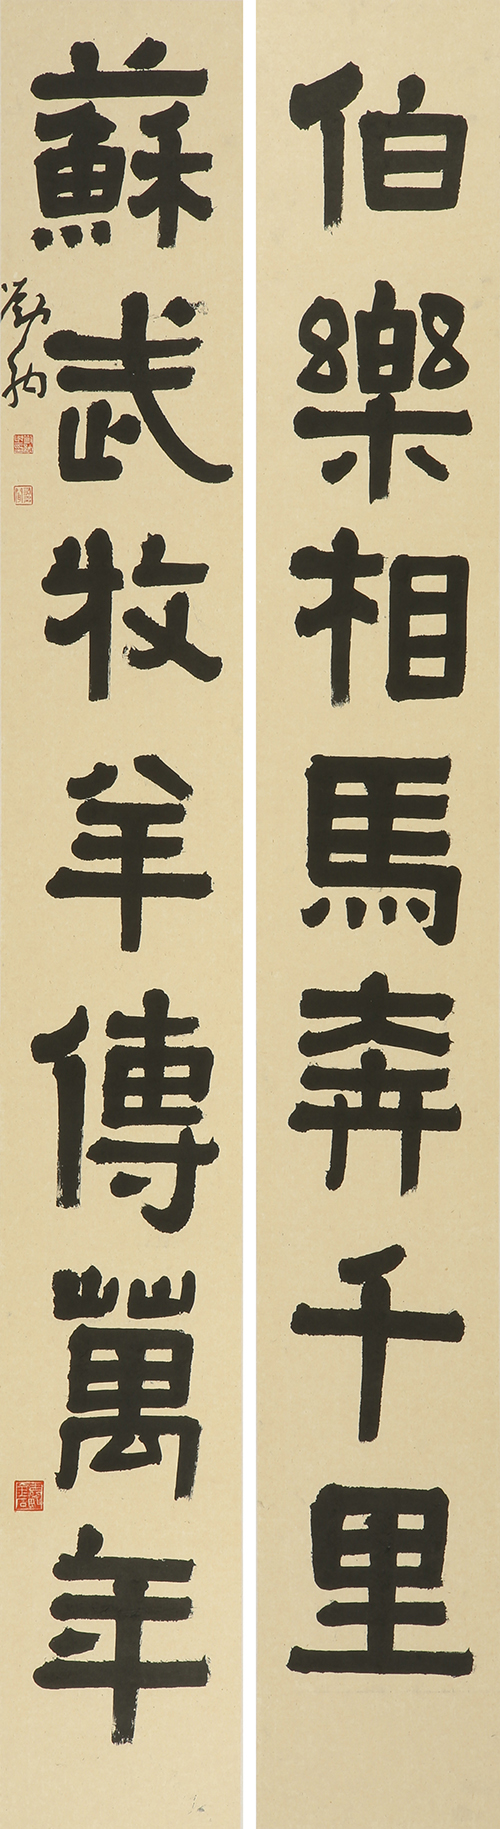 伯樂相馬奔千里
蘇武牧羊傳萬年